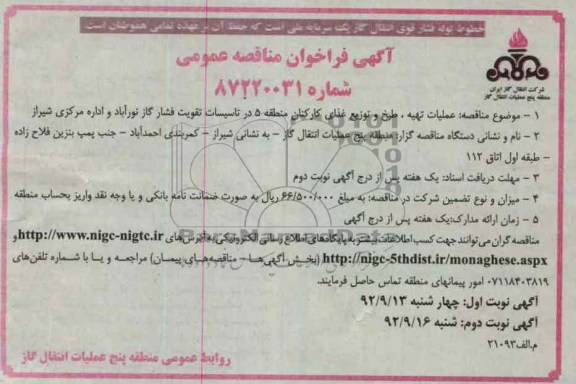 خطوط لوله فشار قوی انتقال گاز یک سرمایه ملی است که حفظ آن بر عهده تمامی هموطنان است.
شرکت انتقال گاز ایران
منطقه پنج عملیات انتقال گاز
آگهی فراخوان مناقصه عمومی
شماره ۸۷۲۲۰۰۳۱
۱ - موضوع مناقصه: عملیات تهیه ، طبخ و توزیع غذای کارکنان منطقه ۵ در تاسیسات تقویت فشار گاز نورآباد و اداره مرکزی شیراز
۲ - نام و نشانی دستگاه مناقصه گزار: منطقه پنج عملیات انتقال گاز - به نشانی شیراز - کمربندی احمدآباد - جنب پمپ بنزین فلاح زاده
- طبقه اول اتاق ۱۱۲
۳ - مهلت دریافت اسناد: یک هفته پس از درج آگهی نوبت دوم
۴ - میزان و نوع تضمین شرکت در مناقصه: به مبلغ ۶۶/۵۰۰/۰۰۰ ریال به صورت ضمانت نامه بانکی و یا وجه نقد واریز بحساب منطقه
۵ - زمان ارائه مدارک: یک هفته پس از درج آگهی
مناقصه گران می‌توانند جهت کسب اطلاعات بیشتر به پایگاه‌های اطلاع رسانی الکترونیکی به آدرس‌های http://www.nigc-nigtc.ir و
http://nigc-5thdist.ir/monaghese.aspx (بخش آگهی‌ها - مناقصه‌های پیمان) مراجعه و یا با شماره تلفن‌های
۰۷۱۱۸۴۰۳۸۱۹ امور پیمانهای منطقه تماس حاصل فرمایند.
آگهی نوبت اول: چهار شنبه ۹۲/۹/۱۳
آگهی نوبت دوم: شنبه ۹۲/۹/۱۶
م.الف۲۱۰۹۳
روابط عمومی منطقه پنج عملیات انتقال گاز